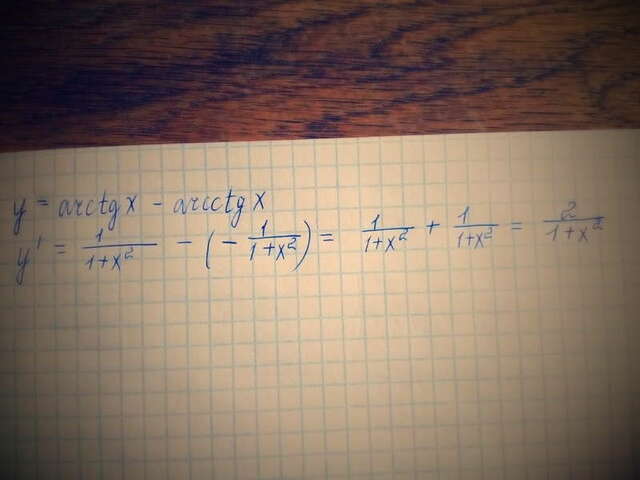 y = arctg x - arcctg x
y' = 1/(1+x²) - (- 1/(1+x²)) = 1/(1+x²) + 1/(1+x²) = 2/(1+x²)